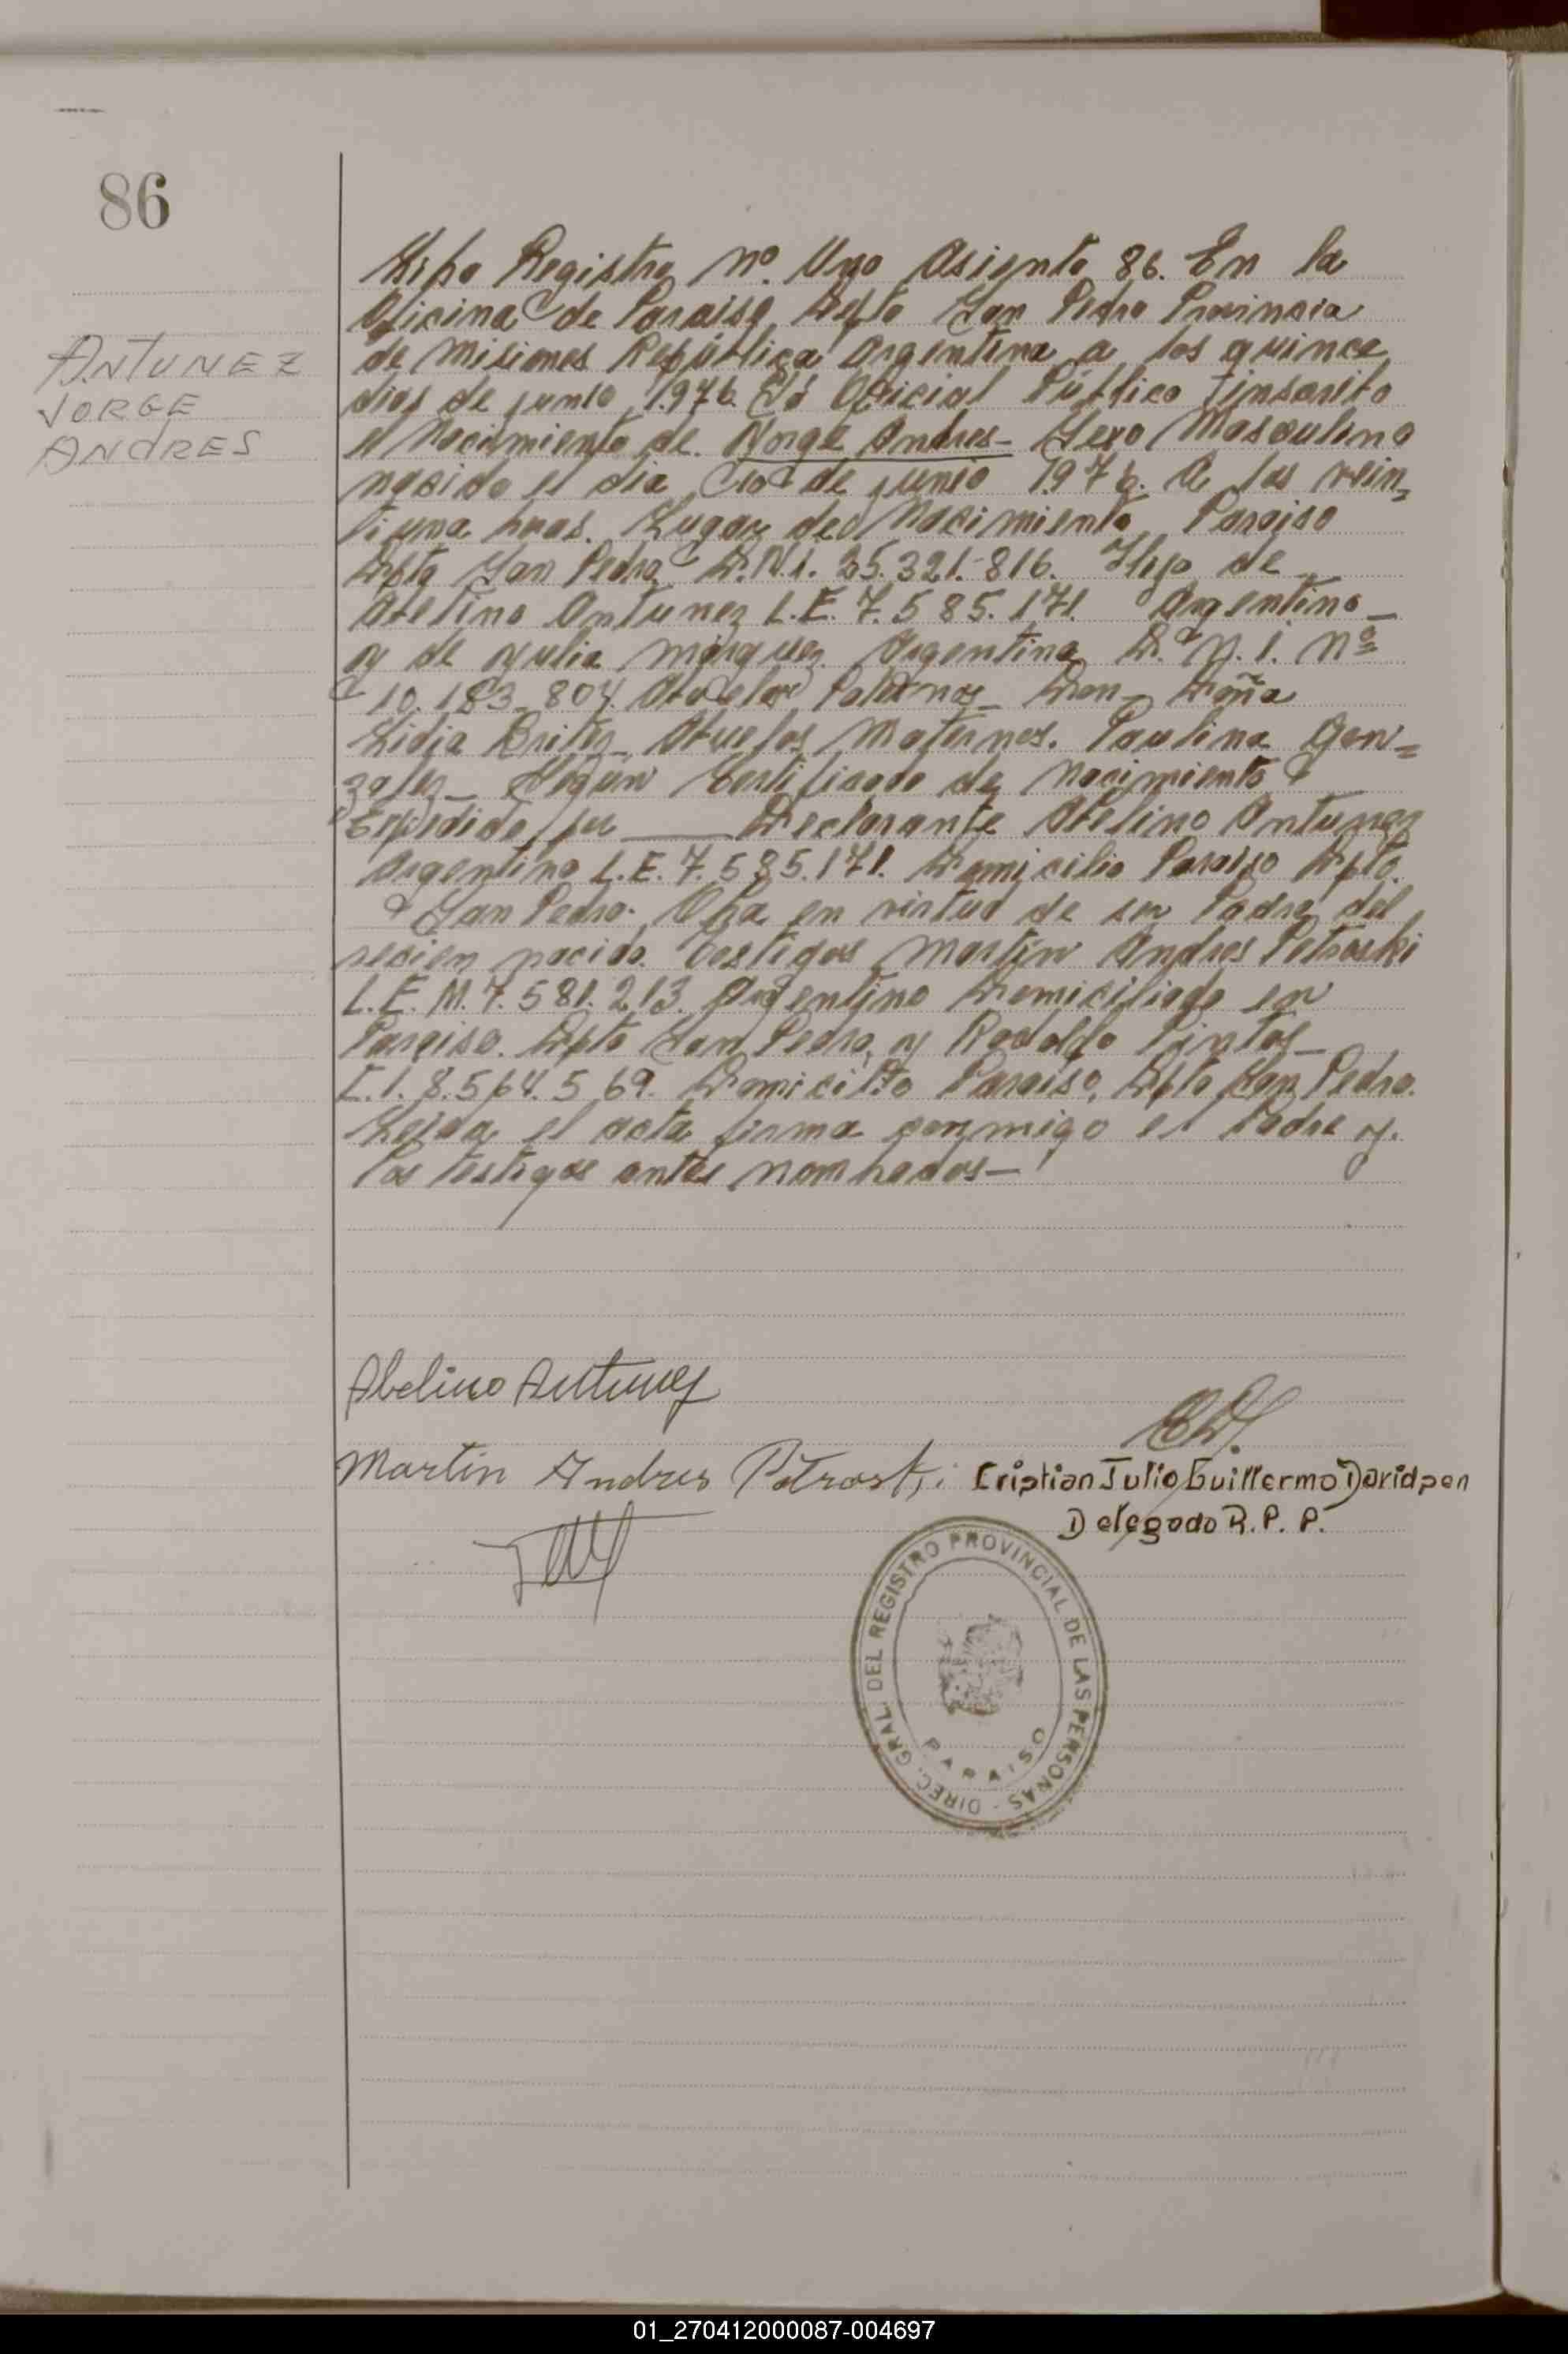 86
ANTUNEZ
JORGE
ANDRES
Registro Nº. Uno Asiento 86. En la
Oficina de Paraiso Dpto San Pedro Provincia
de Misiones República Argentina a los quince
dias de junio 1.976. Oficial Público inscrito
el Nacimiento de. Jorge Andres- Sexo Masculino
nacido el dia de junio 1976. A las vein=
tiuna horas. Lugar de Nacimiento Paraiso
Dpto San Pedro D.N.i. 25.321.816. Hijo de
Abelino Antunez L.E. 7.585.171. Argentino_
y de yulia márquez Argentina D.N.I. Nº
10.183.804. Abuelos Paternos_ Don_ Doña
Lidia Britez_ Abuelos Maternos. Paulina Gon=
zalez_ Según Certificado de Nacimiento
Expedido por ____ Declarante Abelino Antunez
Argentino L.E. 7.585.171. Domicilio Paraiso Dpto.
San Pedro. Obra en virtud de ser Padre del
recien nacido. Testigos Martín Andres Petroski
L.E. M. 7.581.213. Argentino Domiciliado en
Paraiso. Dpto San Pedro, y Rodolfo Pintos_
8.564.569. Domicilio Paraiso, Dpto San Pedro.
Leida el acta firma conmigo el Padre y.
los testigos antes nombrados—
Abelino Antunez
Martin Andres Petroski
Cristian Julio Guillermo Davidsen
Delegado R. P. P.
DIREC. GRAL. DEL REGISTRO PROVINCIAL DE LAS PERSONAS -
PARAISO
01_270412000087-004697